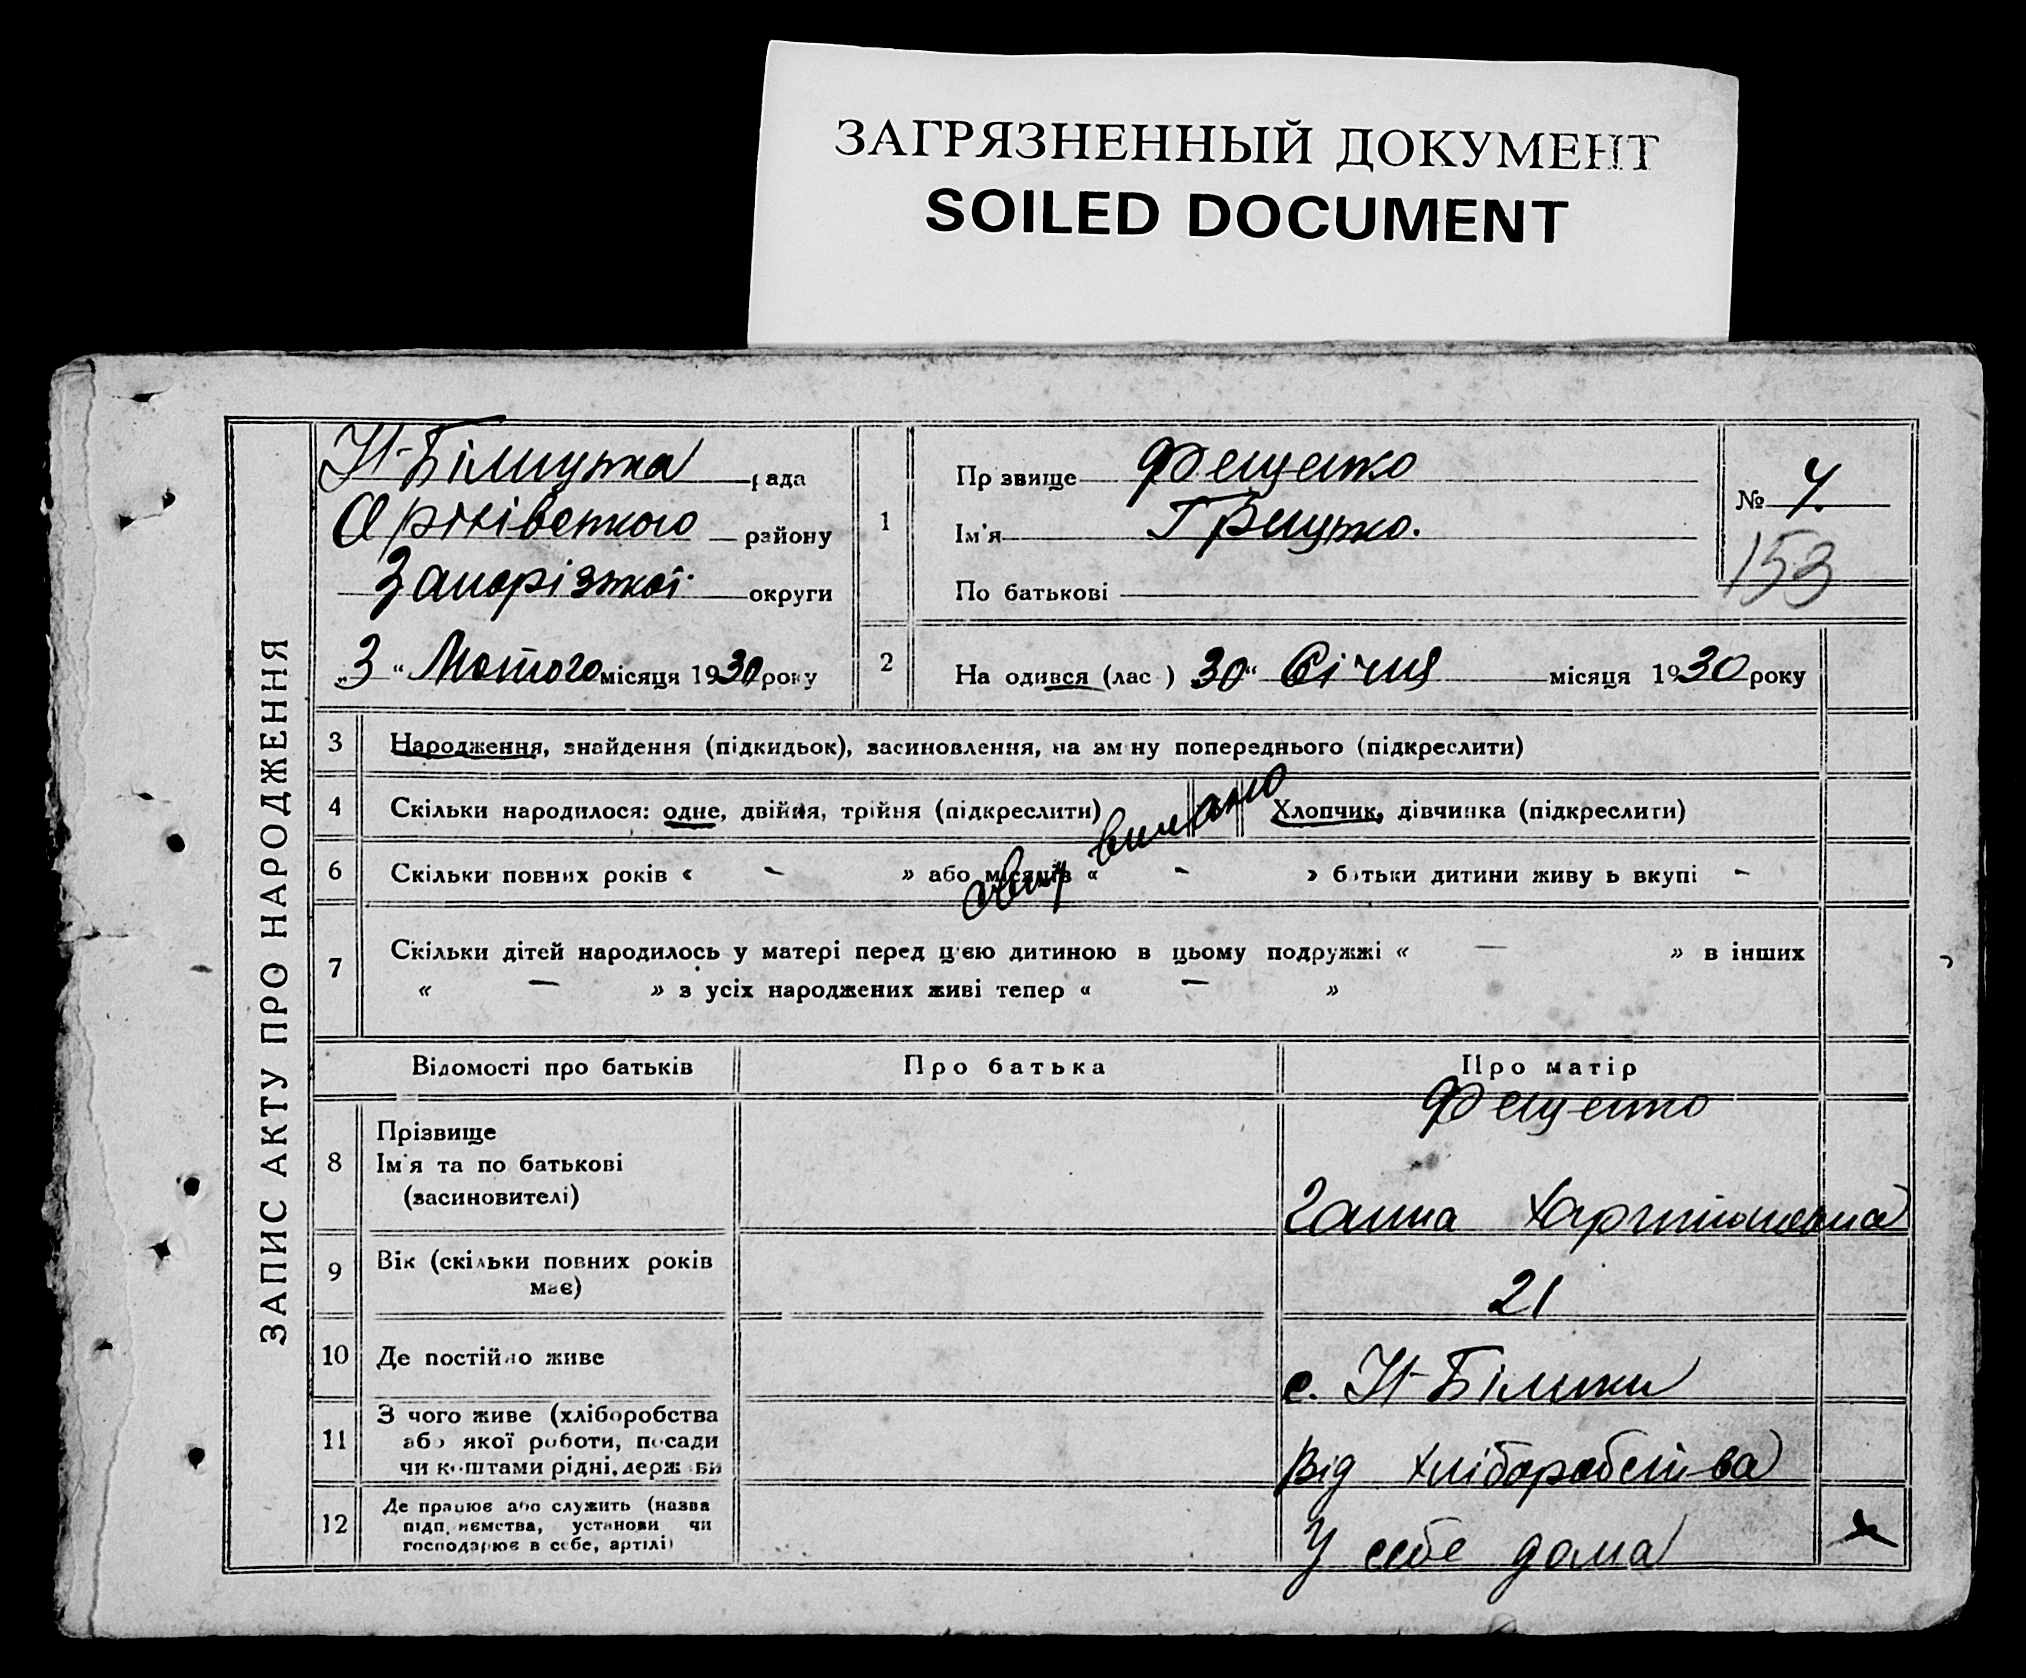 ЗАГРЯЗНЕННЫЙ ДОКУМЕНТ
SOILED DOCUMENT
ЗАПИС АКТУ ПРО НАРОДЖЕННЯ
рада
району
Запорізкої округи
„3“ Лютого місяця 1930 року
1
Пр звище Фещенко
Ім'я Грицько.
По батькові
№ 7.
153
2
На одився (лас ) 30“ Січня місяця 1930 року
3 Народження, знайдення (підкидьок), засиновлення, на зм ну попереднього (підкреслити)
4 Скільки народилося: одне, двійня, трійня (підкреслити) Хлопчик, дівчинка (підкреслити)
6 Скільки повних років « - » або місяців « - » батьки дитини живу ь вкупі -
7 Скільки дітей народилось у матері перед цією дитиною в цьому подружжі « — » в інших
« — » з усіх народжених живі тепер « — »
Відомості про батьків Про батька Про матір
Фещенко
8 Прізвище
Ім'я та по батькові
(засиновителі)
Ганна
9 Вік (скільки повних років
має)
21
10 Де постійно живе
с. Н-Білики
11 З чого живе (хліборобства
або якої роботи, посади
чи коштами рідні, держ ви
Від хліборобства
12 Де працює або служить (назва
підп иємства, установи чи
господарює в себе, артілі)
У себе дома